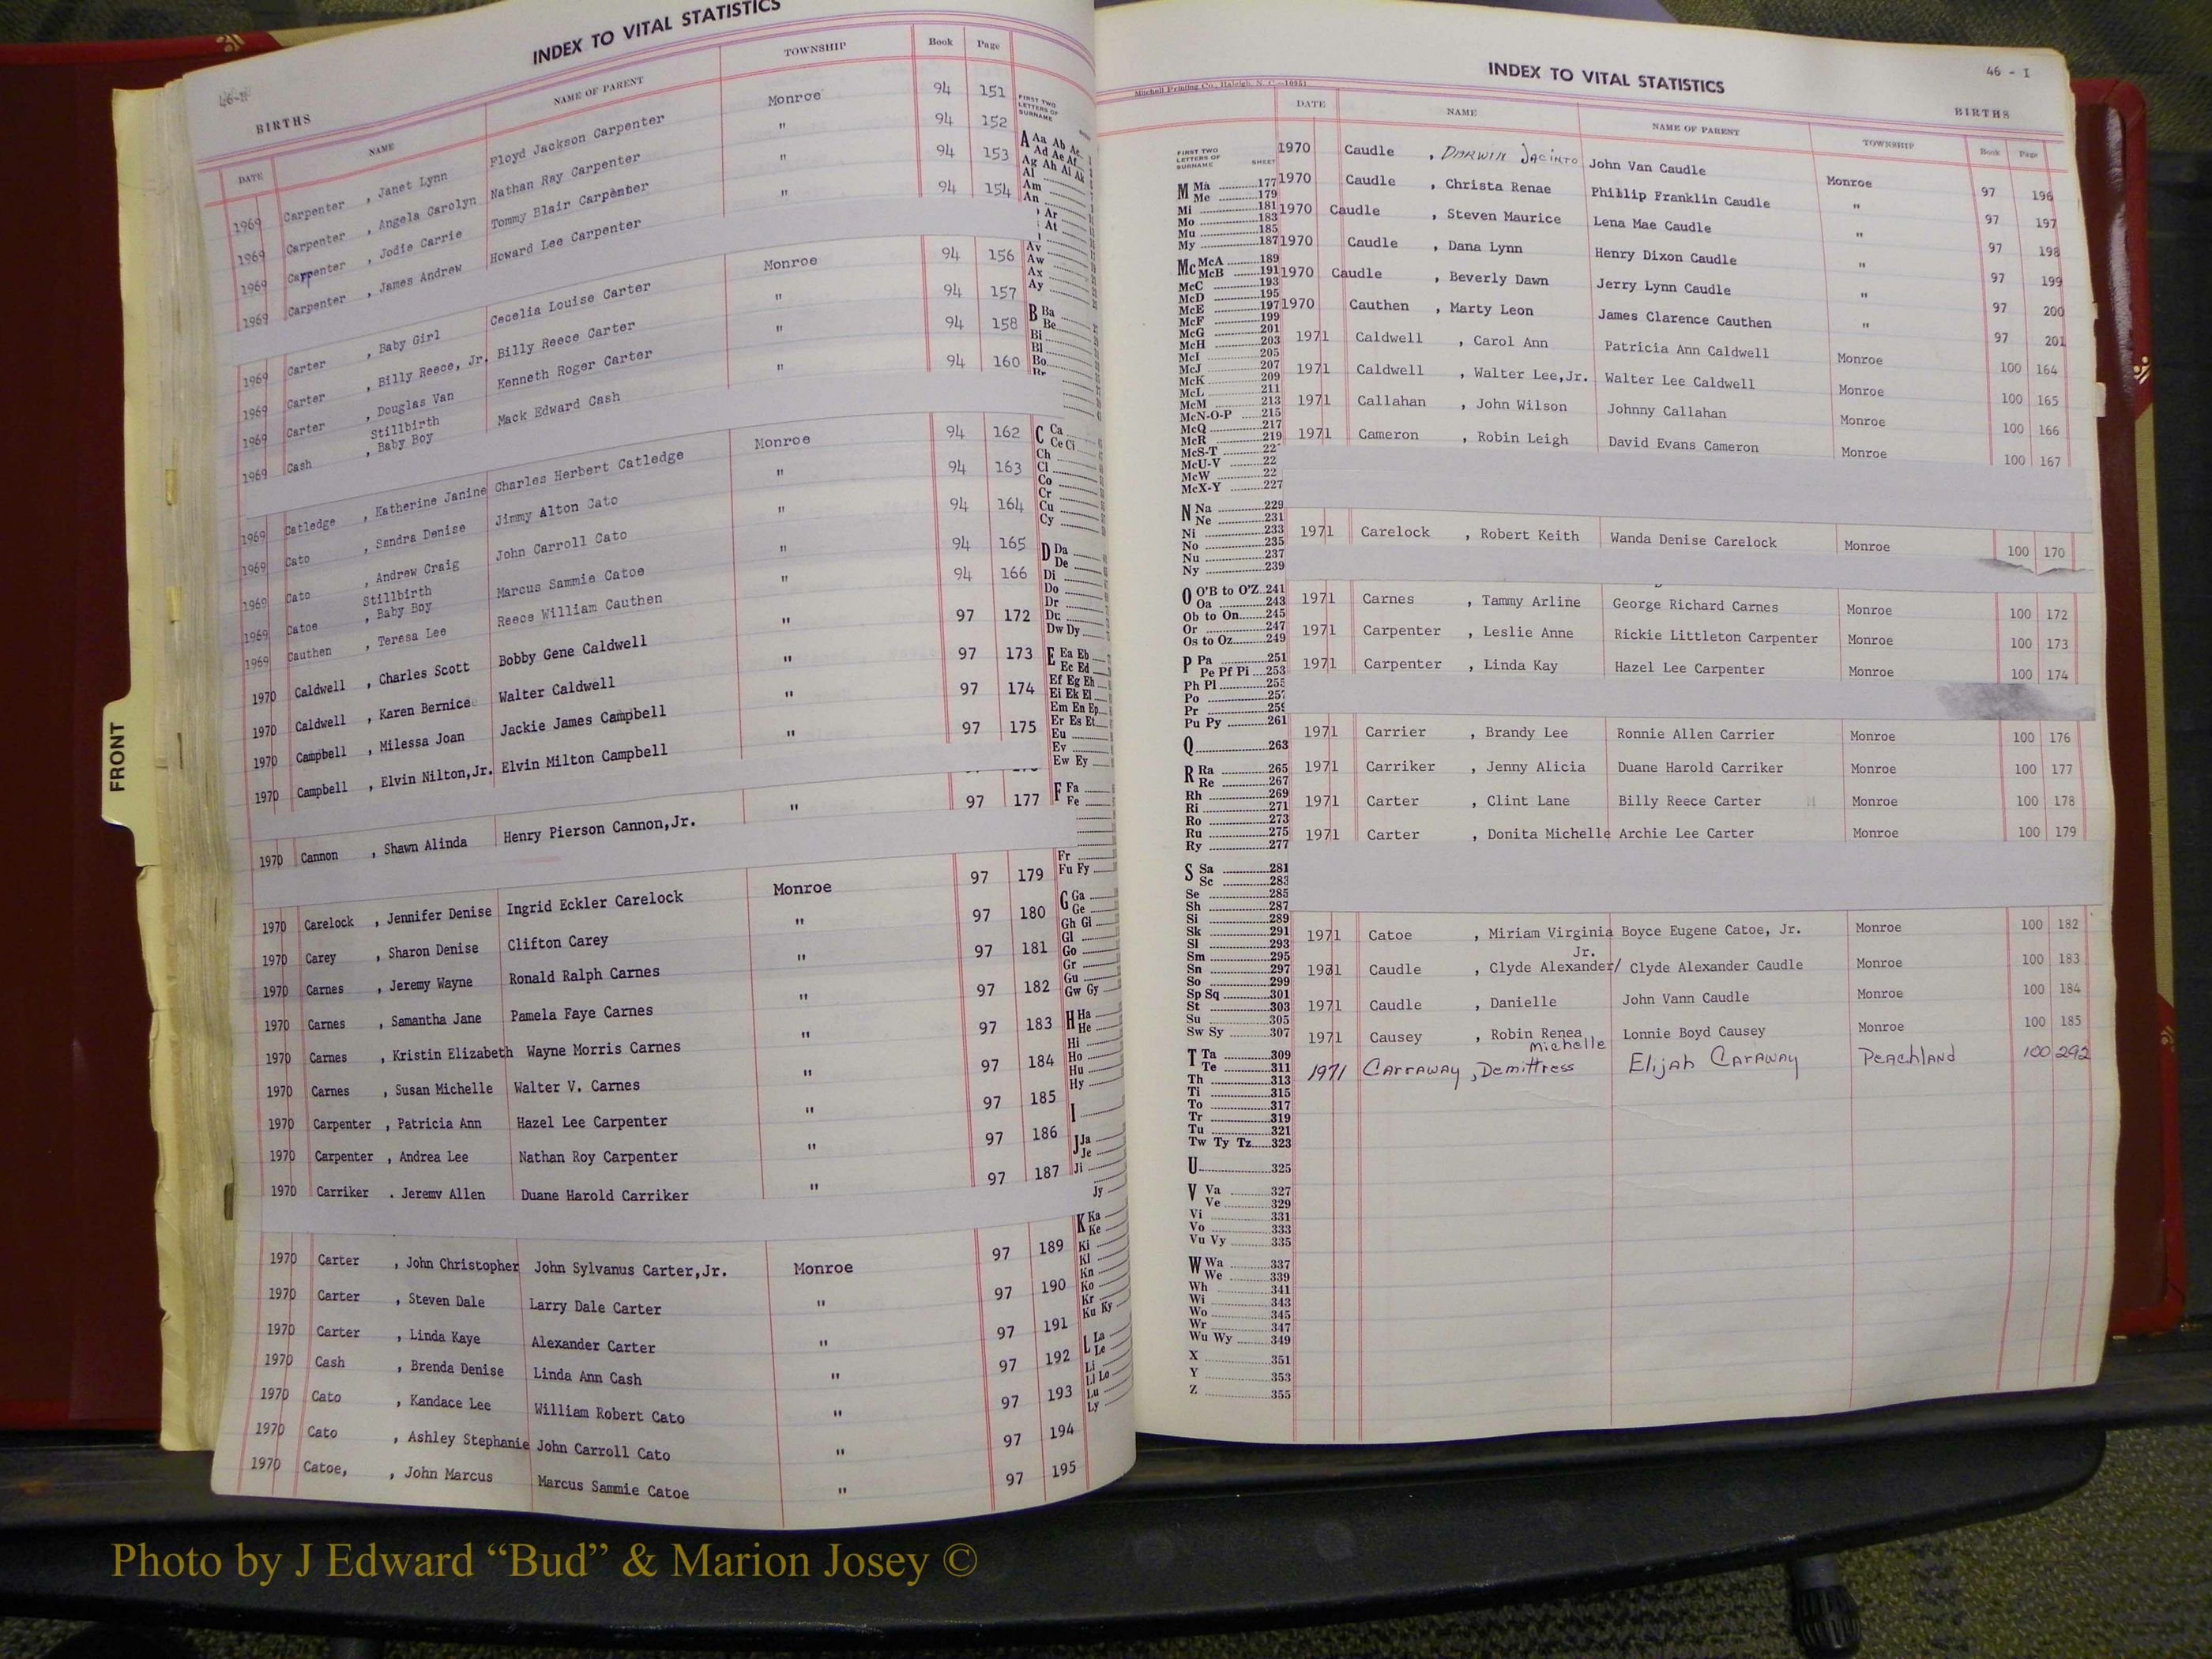 INDEX TO VITAL STATISTICS
46-H
BIRTHS
DATE NAME NAME OF PARENT TOWNSHIP Book Page
1969 Carpenter , Janet Lynn Floyd Jackson Carpenter Monroe 94 151
1969 Carpenter , Angela Carolyn Nathan Ray Carpenter " 94 152
1969 Carpenter , Jodie Carrie Tommy Blair Carpenter " 94 153
1969 Carpenter , James Andrew Howard Lee Carpenter " 94 154
1969 Carter , Baby Girl Cecelia Louise Carter Monroe 94 156
1969 Carter , Billy Reece, Jr. Billy Reece Carter " 94 157
1969 Carter , Douglas Van Kenneth Roger Carter " 94 158
Stillbirth
1969 Cash , Baby Boy Mack Edward Cash " 94 160
1969 Catledge , Katherine Janine Charles Herbert Catledge Monroe 94 162
1969 Cato , Sandra Denise Jimmy Alton Cato " 94 163
1969 Cato , Andrew Craig John Carroll Cato " 94 164
Stillbirth
1969 Catoe , Baby Boy Marcus Sammie Catoe " 94 165
1969 Cauthen , Teresa Lee Reece William Cauthen " 94 166
1970 Caldwell , Charles Scott Bobby Gene Caldwell " 97 172
1970 Caldwell , Karen Bernice Walter Caldwell " 97 173
1970 Campbell , Milessa Joan Jackie James Campbell " 97 174
1970 Campbell , Elvin Nilton,Jr. Elvin Milton Campbell " 97 175
1970 Cannon , Shawn Alinda Henry Pierson Cannon,Jr. " 97 177
1970 Carelock , Jennifer Denise Ingrid Eckler Carelock Monroe 97 179
1970 Carey , Sharon Denise Clifton Carey " 97 180
1970 Carnes , Jeremy Wayne Ronald Ralph Carnes " 97 181
1970 Carnes , Samantha Jane Pamela Faye Carnes " 97 182
1970 Carnes , Kristin Elizabeth Wayne Morris Carnes " 97 183
1970 Carnes , Susan Michelle Walter V. Carnes " 97 184
1970 Carpenter , Patricia Ann Hazel Lee Carpenter " 97 185
1970 Carpenter , Andrea Lee Nathan Roy Carpenter " 97 186
1970 Carriker . Jeremy Allen Duane Harold Carriker " 97 187
1970 Carter , John Christopher John Sylvanus Carter,Jr. Monroe 97 189
1970 Carter , Steven Dale Larry Dale Carter " 97 190
1970 Carter , Linda Kaye Alexander Carter " 97 191
1970 Cash , Brenda Denise Linda Ann Cash " 97 192
1970 Cato , Kandace Lee William Robert Cato " 97 193
1970 Cato , Ashley Stephanie John Carroll Cato " 97 194
1970 Catoe, , John Marcus Marcus Sammie Catoe " 97 195
FIRST TWO
LETTERS OF
SURNAME
A Aa Ab Ac
Ad Ae Af
Ag Ah Ai Ak
Al
Am
An
Ar
At
Av
Aw
Ax
Ay
B Ba
Be
Bi
Bl
Bo
Br
C Ca
Ce Ci
Ch
Cl
Co
Cr
Cu
Cy
D Da
De
Di
Do
Dr
Du
Dw Dy
E Ea Eb
Ec Ed
Ef Eg Eh
Ei Ek El
Em En Ep
Er Es Et
Eu
Ev
Ew Ey
F Fa
Fe
Fr
Fu Fy
G Ga
Ge
Gh Gi
Gl
Go
Gr
Gu
Gw Gy
H Ha
He
Hi
Ho
Hu
Hy
I
J Ja
Je
Ji
Jy
K Ka
Ke
Ki
Kl
Kn
Ko
Kr
Ku Ky
L La
Le
Li
Ll Lo
Lu
Ly
FRONT
INDEX TO VITAL STATISTICS
46 - I
Mitchell Printing Co., Raleigh, N. C.—10951
BIRTHS
DATE NAME NAME OF PARENT TOWNSHIP Book Page
1970 Caudle , Darwin Jacinto John Van Caudle Monroe 97 196
1970 Caudle , Christa Renae Phillip Franklin Caudle " 97 197
1970 Caudle , Steven Maurice Lena Mae Caudle " 97 198
1970 Caudle , Dana Lynn Henry Dixon Caudle " 97 199
1970 Caudle , Beverly Dawn Jerry Lynn Caudle " 97 200
1970 Cauthen , Marty Leon James Clarence Cauthen " 97 201
1971 Caldwell , Carol Ann Patricia Ann Caldwell Monroe 100 164
1971 Caldwell , Walter Lee,Jr. Walter Lee Caldwell Monroe 100 165
1971 Callahan , John Wilson Johnny Callahan Monroe 100 166
1971 Cameron , Robin Leigh David Evans Cameron Monroe 100 167
1971 Carelock , Robert Keith Wanda Denise Carelock Monroe 100 170
1971 Carnes , Tammy Arline George Richard Carnes Monroe 100 172
1971 Carpenter , Leslie Anne Rickie Littleton Carpenter Monroe 100 173
1971 Carpenter , Linda Kay Hazel Lee Carpenter Monroe 100 174
1971 Carrier , Brandy Lee Ronnie Allen Carrier Monroe 100 176
1971 Carriker , Jenny Alicia Duane Harold Carriker Monroe 100 177
1971 Carter , Clint Lane Billy Reece Carter Monroe 100 178
1971 Carter , Donita Michelle Archie Lee Carter Monroe 100 179
1971 Catoe , Miriam Virginia Boyce Eugene Catoe, Jr. Monroe 100 182
Jr.
1971 Caudle , Clyde Alexander/ Clyde Alexander Caudle Monroe 100 183
1971 Caudle , Danielle John Vann Caudle Monroe 100 184
1971 Causey , Robin Renea Lonnie Boyd Causey Monroe 100 185
Michelle
1971 Carraway , Demittress Elijah Caraway Peachland 100 292
FIRST TWO
LETTERS OF
SURNAME SHEET
M Ma 177
Me 179
Mi 181
Mo 183
Mu 185
My 187
Mc McA 189
McB 191
McC 193
McD 195
McE 197
McF 199
McG 201
McH 203
McI 205
McJ 207
McK 209
McL 211
McM 213
McN-O-P 215
McQ 217
McR 219
McS-T 22
McU-V 22
McW 22
McX-Y 227
N Na 229
Ne 231
Ni 233
No 235
Nu 237
Ny 239
O O'B to O'Z 241
Oa 243
Ob to On 245
Or 247
Os to Oz 249
P Pa 251
Pe Pf Pi 253
Ph Pl 255
Po 257
Pr 259
Pu Py 261
Q 263
R Ra 265
Re 267
Rh 269
Ri 271
Ro 273
Ru 275
Ry 277
S Sa 281
Sc 283
Se 285
Sh 287
Si 289
Sk 291
Sl 293
Sm 295
Sn 297
So 299
Sp Sq 301
St 303
Su 305
Sw Sy 307
T Ta 309
Te 311
Th 313
Ti 315
To 317
Tr 319
Tu 321
Tw Ty Tz 323
U 325
V Va 327
Ve 329
Vi 331
Vo 333
Vu Vy 335
W Wa 337
We 339
Wh 341
Wi 343
Wo 345
Wr 347
Wu Wy 349
X 351
Y 353
Z 355
Photo by J Edward “Bud” & Marion Josey ©